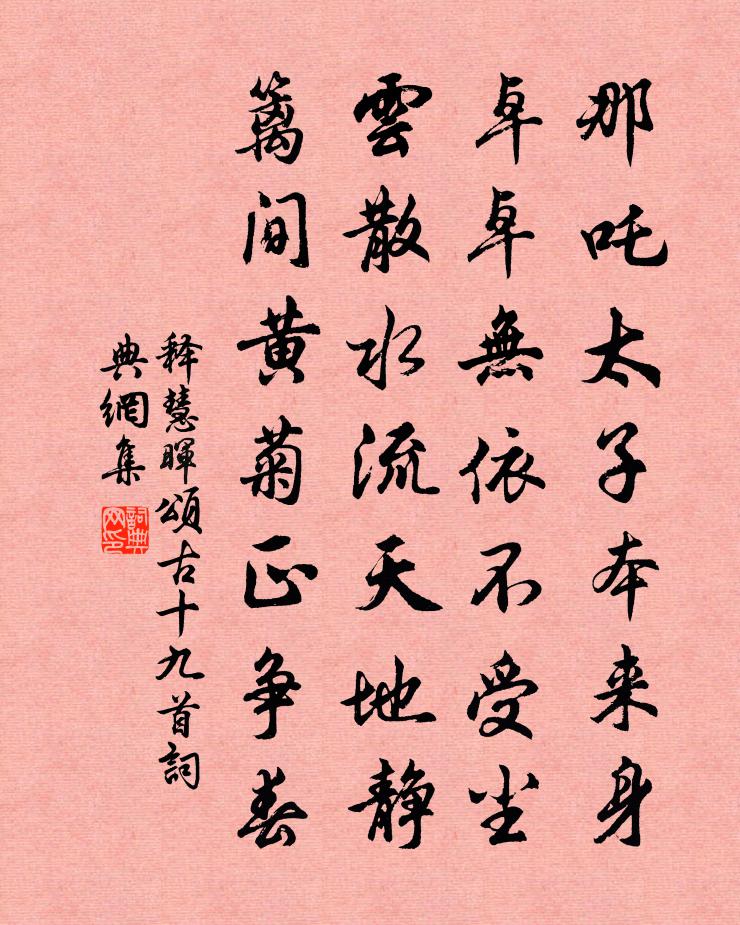 那吒太子本来身
卓卓無依不受尘
雲散水流天地静
籬间黄菊正争春
释慧暉頌古十九首詞
典網集
詞典
网印